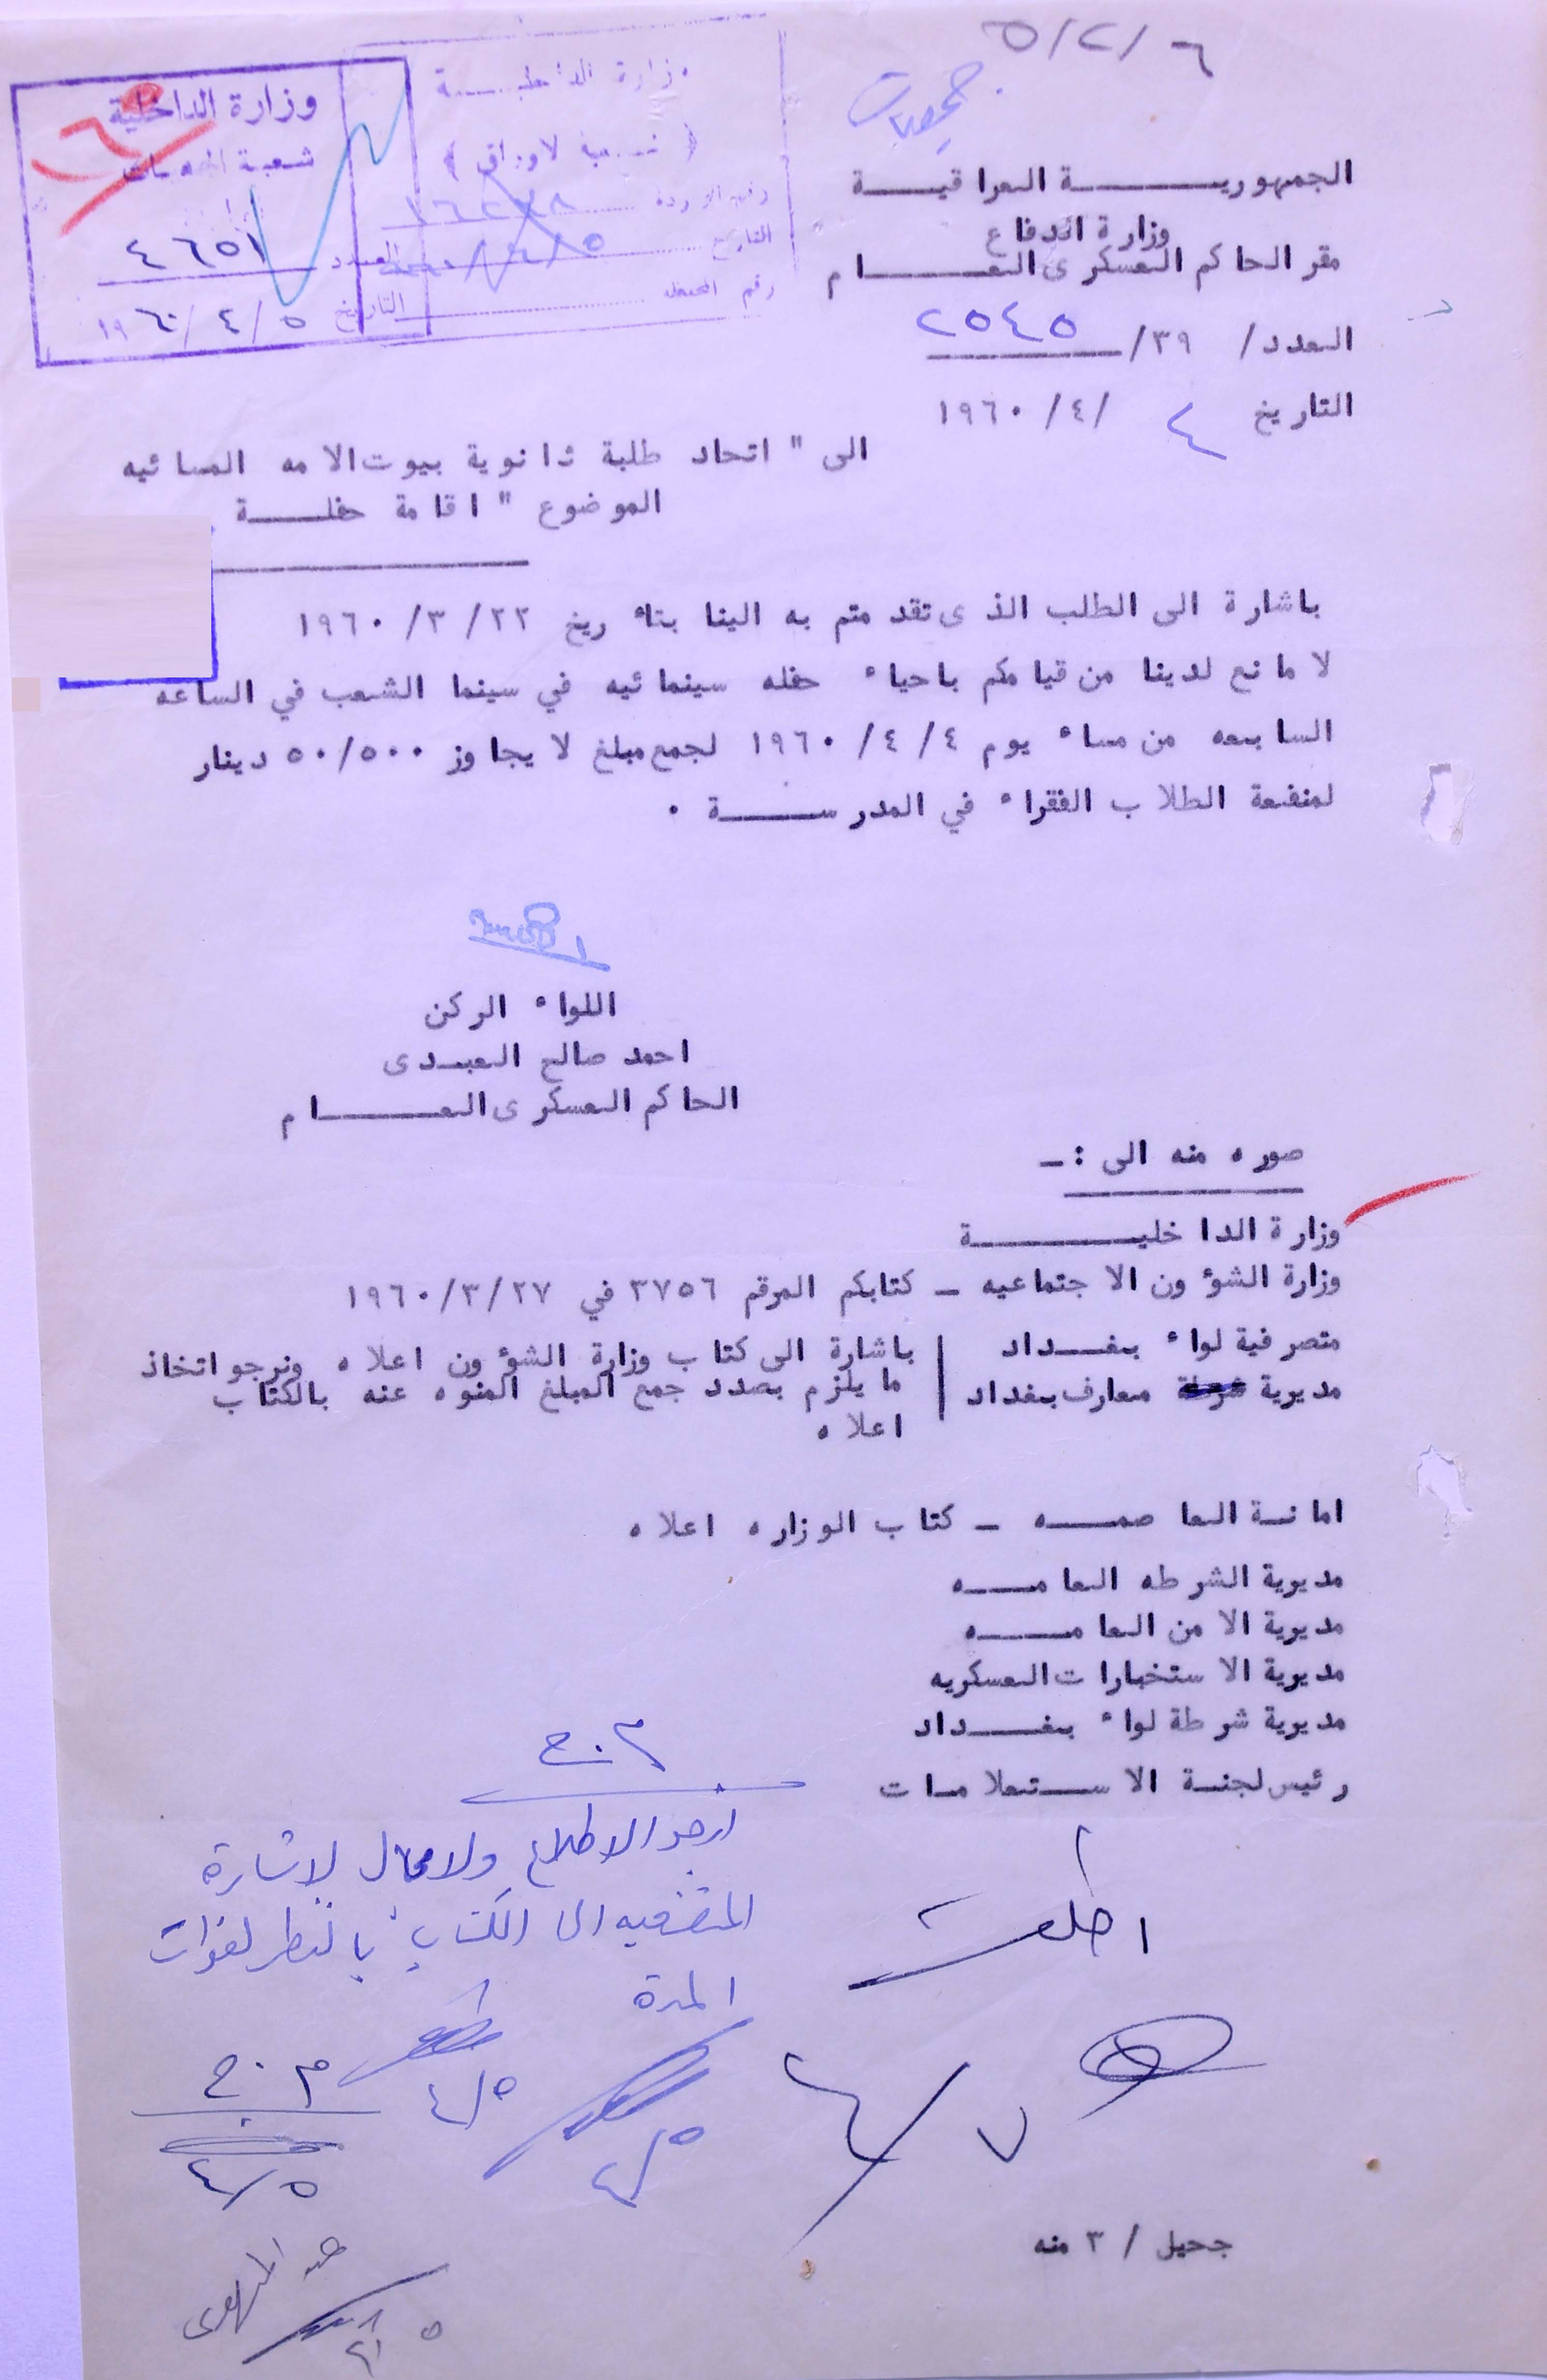 ٥/٢/٦
الجمعيات
وزارة الداخلية
شعبة الجمعيات
العدد ٤٦٥١
التاريخ ٥/٤/١٩٦٠
وزارة الداخليـــة
رقم الواردة
التاريخ
رقم المحفظة
الجمهوريـــــة العراقيــــة
وزارة الدفاع
مقر الحاكم العسكرى العـــــام
العدد/ ٣٩/ ٢٥٤٥
التاريخ ٤ /٤/ ١٩٦٠
الى " اتحاد طلبة ثانوية بيوت الامه المسائيه
الموضوع " اقامة حفلـــة
باشارة الى الطلب الذى تقدمتم به الينا بتاريخ ٢٢/ ٣/ ١٩٦٠
لا مانع لدينا من قيامكم باحياء حفله سينمائيه في سينما الشعب في الساعه
السابعه من مساء يوم ٤/ ٤/ ١٩٦٠ لجمع مبلغ لا يجاوز ٥٠/٥٠٠ دينار
لمنفعة الطلاب الفقراء في المدرســـــة .
اللواء الركن
احمد صالح العبـدى
الحاكم العسكرى العـــــام
صوره منه الى :ـ
وزارة الداخليـــــــة
وزارة الشؤون الاجتماعيه ـ كتابكم المرقم ٣٧٥٦ في ٢٧/ ٣/ ١٩٦٠
متصرفية لواء بغـــداد
مديرية معارف بغداد
باشارة الى كتاب وزارة الشؤون اعلاه ونرجو اتخاذ
ما يلزم بصدد جمع المبلغ المنوه عنه بالكتاب
اعلاه
امانـة العاصمـــه ـ كتاب الوزاره اعلاه
مديرية الشرطه العامــــه
مديرية الامن العامــــه
مديرية الاستخبارات العسكريه
مديرية شرطة لواء بغـــداد
رئيس لجنـة الاســتعلامـات
م.ح
ارجو الاطلاع ولا مجال لاشارة
المتصرفيه الى الكتاب بالنظر لفوات
المدة
اطلعت
٧/٤
٥/٤
٥/٤
م.ح
٥/٤
جحيل / ٣ منه